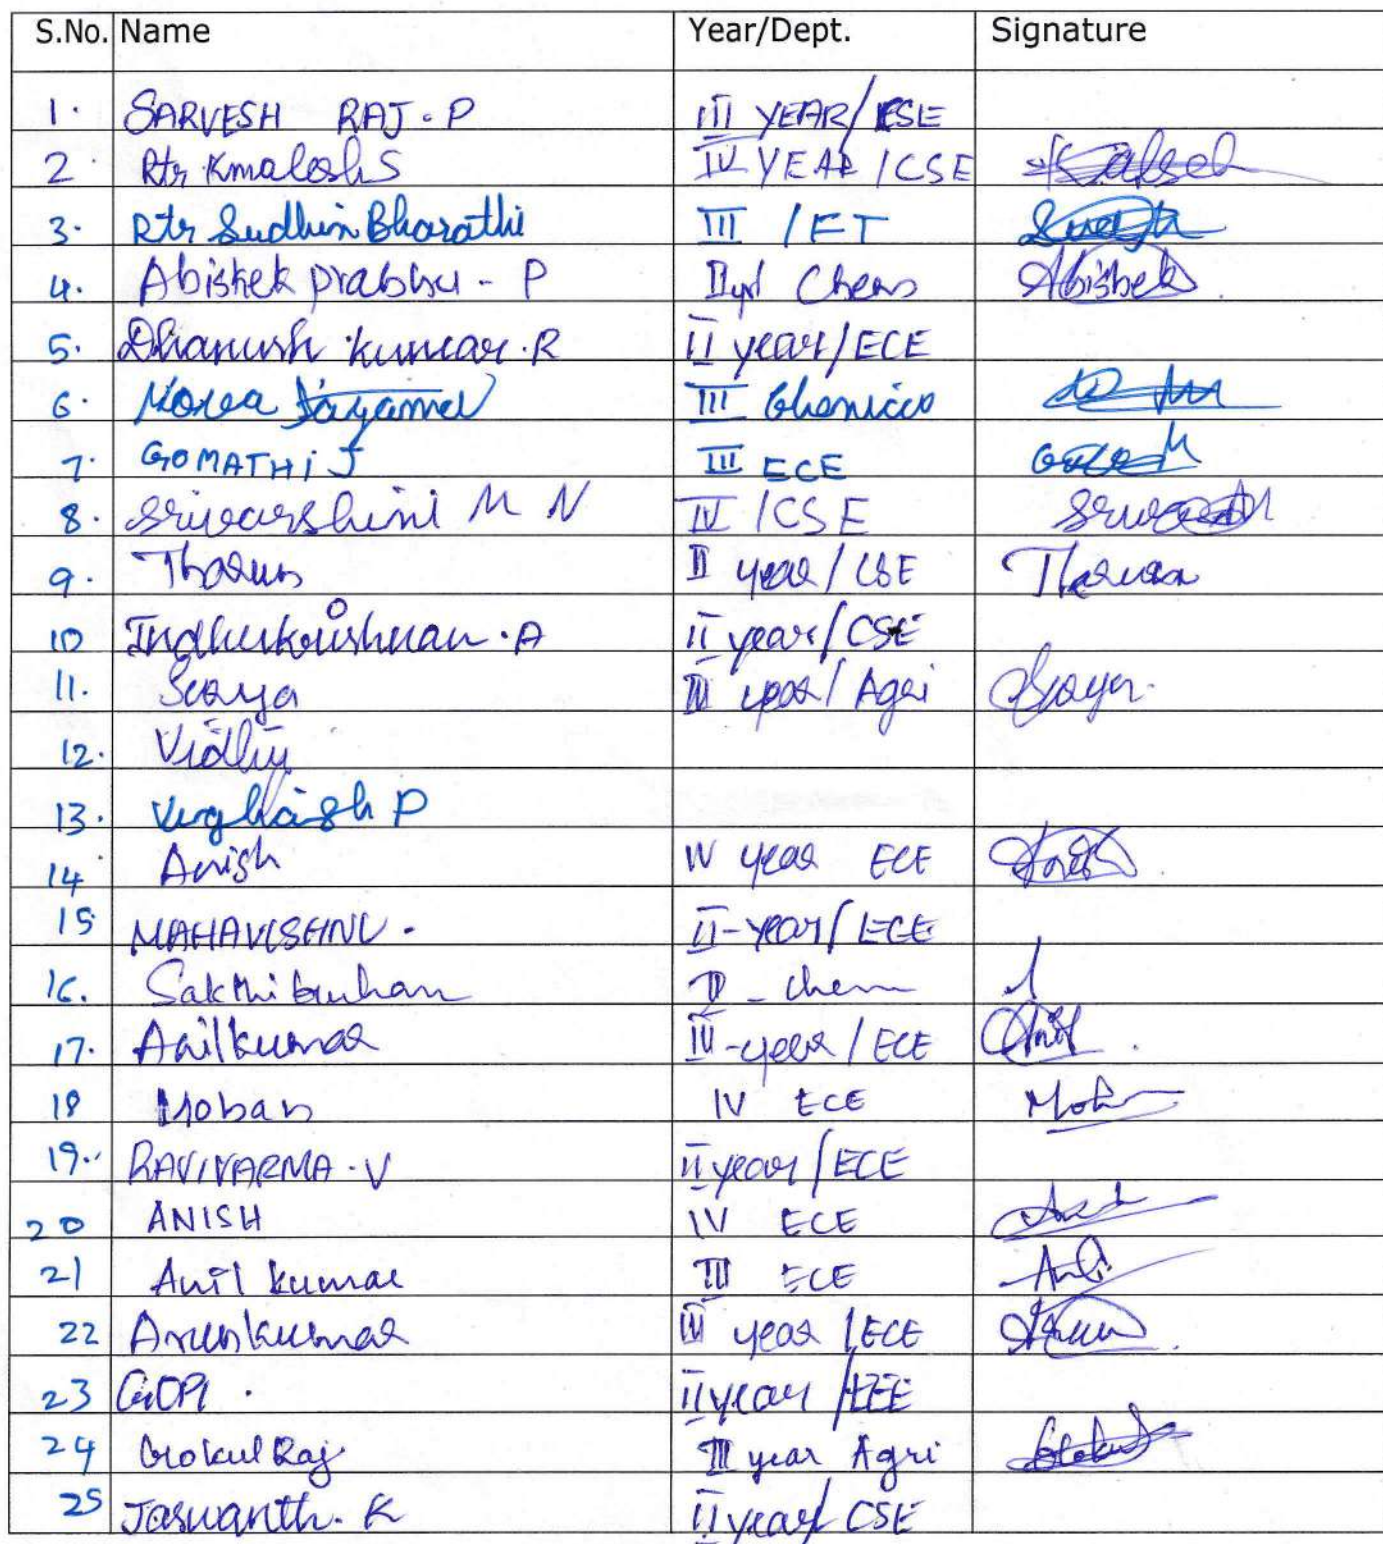 S.No. Name Year/Dept. Signature
1. SARVESH RAJ. P III YEAR/CSE
2. Rtr Kmalesh S IV YEAR /CSE
3. Rtr Sudhin Bharathi III / ET
4. Abishek prabhu - P II yr Chem Abishek
5. Dhanush kumar. R II year/ECE
6. III Chemical
7. GOMATHI J III ECE
8. Srivarshini M N IV /CSE
9. Tharun II year/CSE Tharun
10 Indhukrishnan . A II year/CSE
11. Surya III year/Agri Surya.
12.
13. P
14. Anish IV year ECE
15 MAHAVISHNU. II-year/ECE
16. Sakthibruhan II - chem
17. Anilkumar IV-year/ECE Anil.
18 Mohan IV ECE Moh
19. RAVIVARMA. V II year/ECE
20 ANISH IV ECE
21 Anil kumar III ECE
22 Arunkumar IV year /ECE Arun
23 GOPI . II year /EEE
24 Gokul Raj III year Agri Gokul
25 Jaswanth. K II year/ CSE